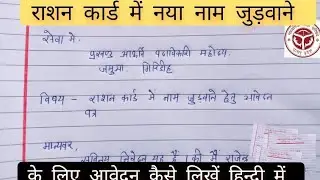 राशन कार्ड में नया नाम जुड़वाने
सेवा में,
प्रखण्ड आपूर्ति पदाधिकारी महोदय
जमुआ गिरिडीह
विषय - राशन कार्ड में नाम जुड़वाने हेतु आवेदन
पत्र
मान्यवर,
सविनय निवेदन यह है कि मैं
के लिए आवेदन कैसे लिखें हिन्दी में